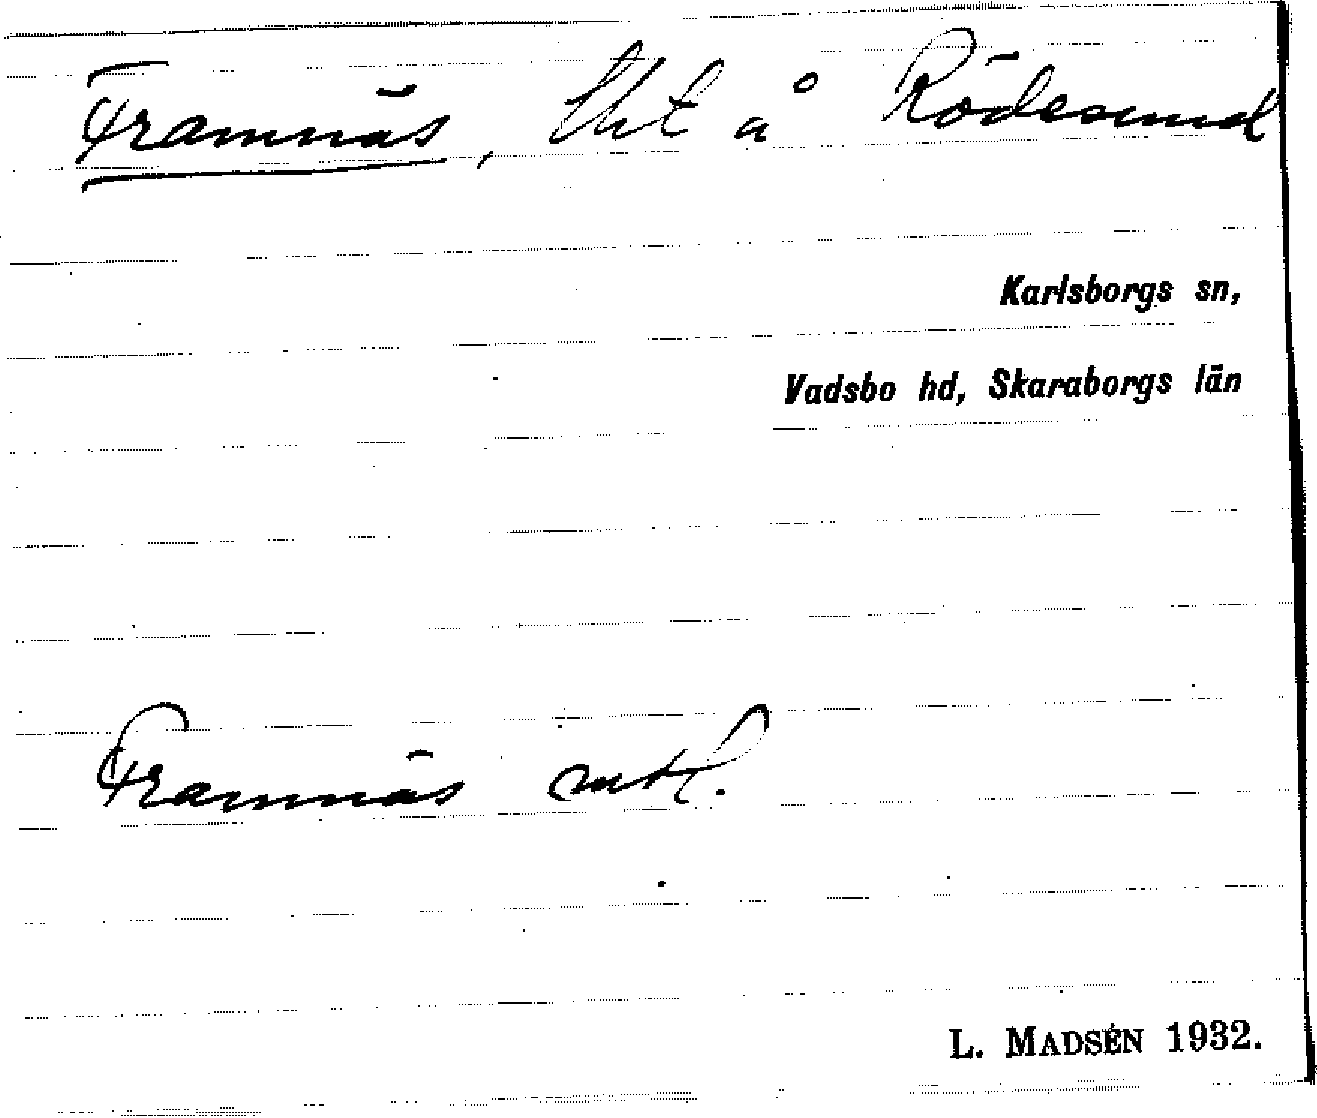 Framnäs, tht å Rödesund
Karlsborgs sn,
Vadsbo hd, Skaraborgs län
Framnäs mtl.
L. MADSÉN 1932.